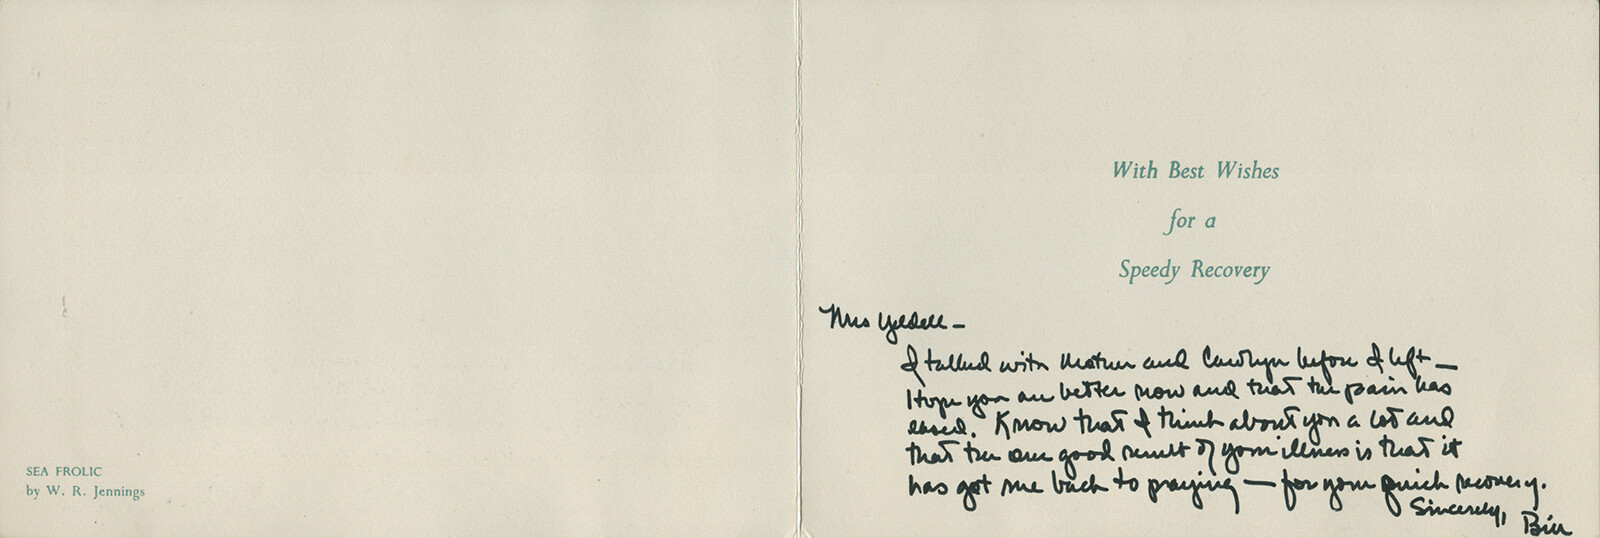 SEA FROLIC
by W. R. Jennings
With Best Wishes
for a
Speedy Recovery
Mrs Yeldell —
I talked with Mother and Carolyn before I left —
Hope you are better now and that the pain has
eased. Know that I think about you a lot and
that the one good result of your illness is that it
has got me back to praying — for your quick recovery.
Sincerely,
Bill